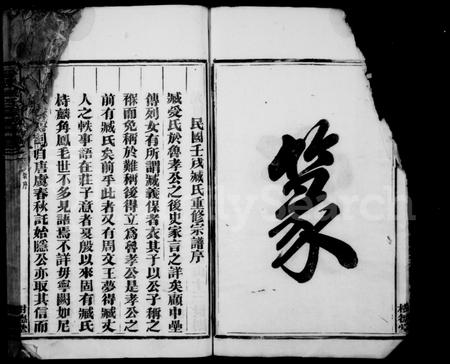 篆
民國壬戌臧氏重修宗譜序
臧受氏於魯孝公之後史家言之詳矣顧申壘
傳列女有所謂臧義保者衣其子以公子稱之
稱而免稱於難稱後得立為魯孝公是孝公之
前有臧氏矣前乎此者又有周文王夢得臧丈
人之軼事語在莊子意者夏殷以來固有臧氏
特麟角鳳毛世不多見語焉不詳毋寧闕如尼
自唐虞春秋託始隱公亦取其信而
MySearch